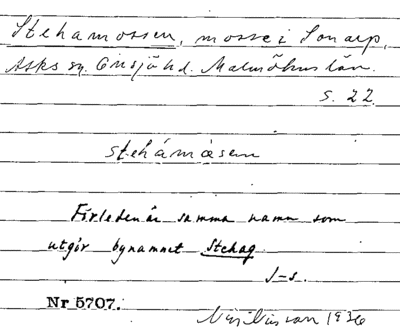 Stehamossen, mosse i Sonarp,
Asks sn. Onsjö hd. Malmöhus län.
s. 22
stehámåsen
Förleden är samma namn som
utgör bynamnet Stehag.
J-s.
Nr 5707.
1936